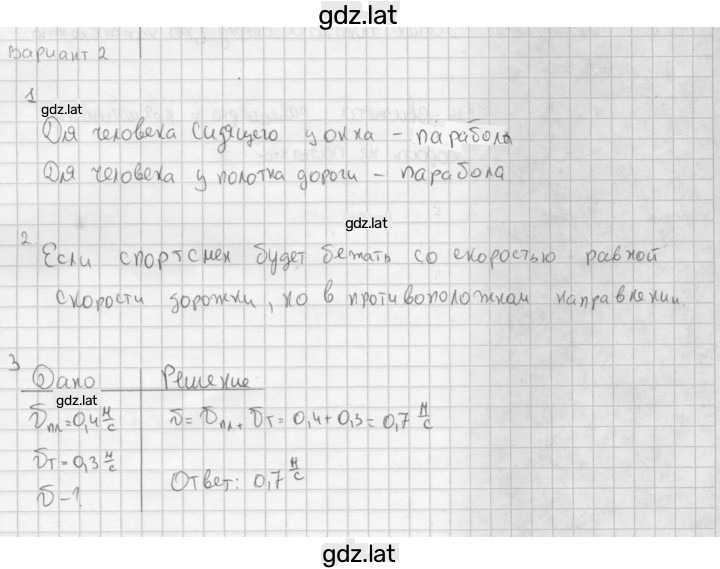 gdz.lat
Вариант 2
1
gdz.lat
Для человека сидящего у окна – парабола
Для человека у полотна дороги – парабола
gdz.lat
2
Если спортсмен будет бежать со скоростью равной
скорости дорожки, но в противоположном направлении.
3
Дано Решение
gdz.lat
υпл = 0,4 м/с υ = υпл + υт = 0,4 + 0,3 = 0,7 м/с
υт = 0,3 м/с
Ответ: 0,7 м/с
υ – ?
gdz.lat